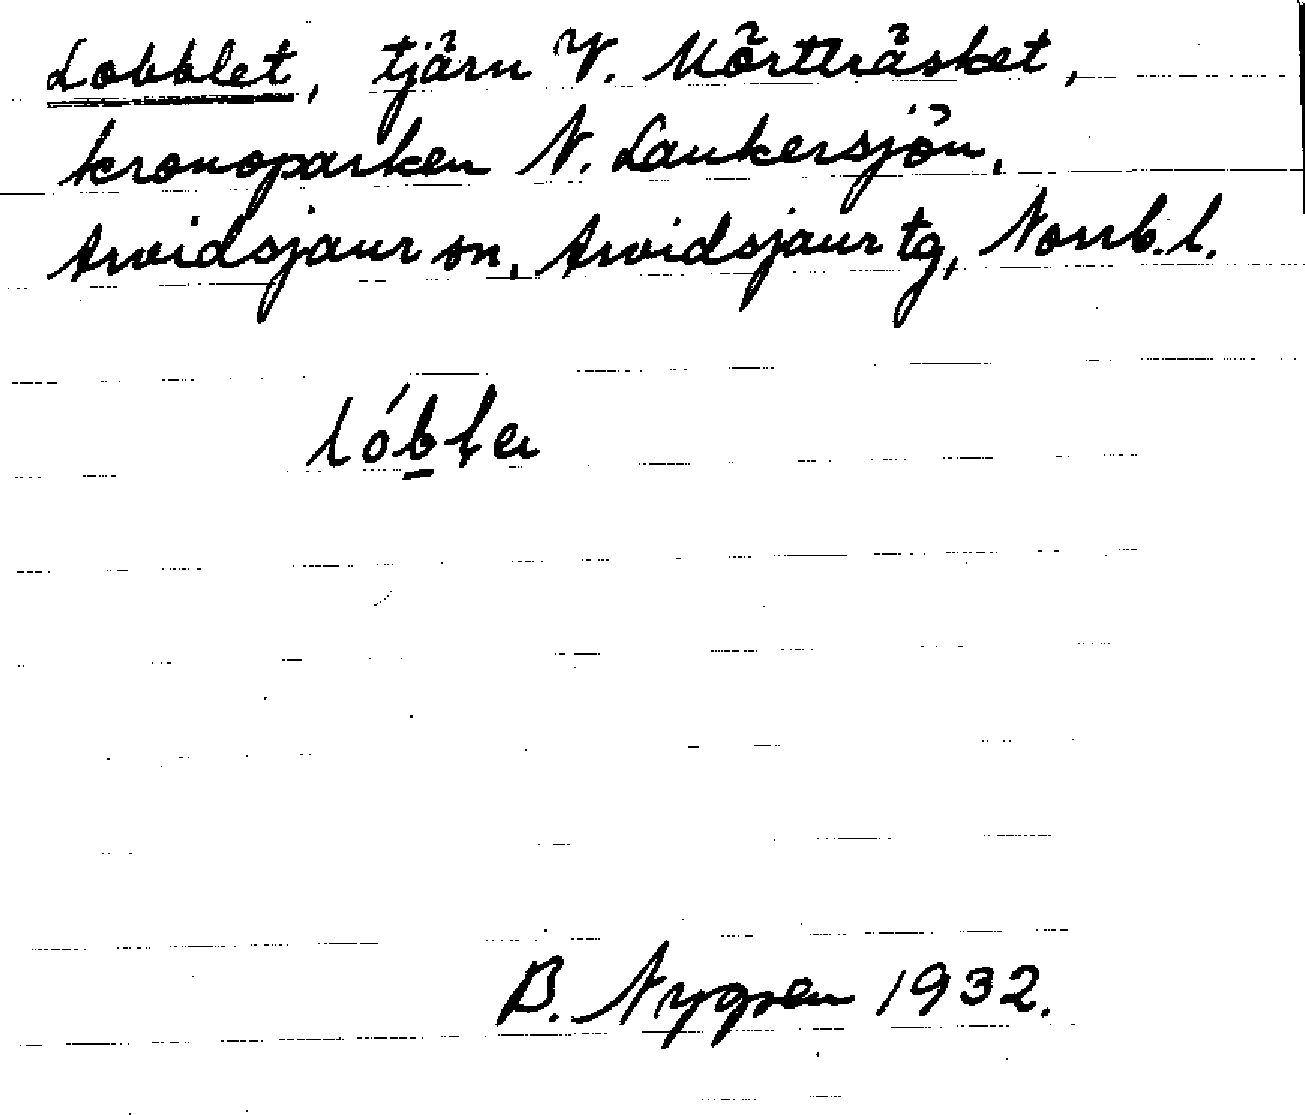 Lobblet, tjärn V. Mörtträsket,
kronoparken N. Laukersjön,
Arvidsjaur sn, Arvidsjaur tg, Norrb. l.
B. Nygren 1932.